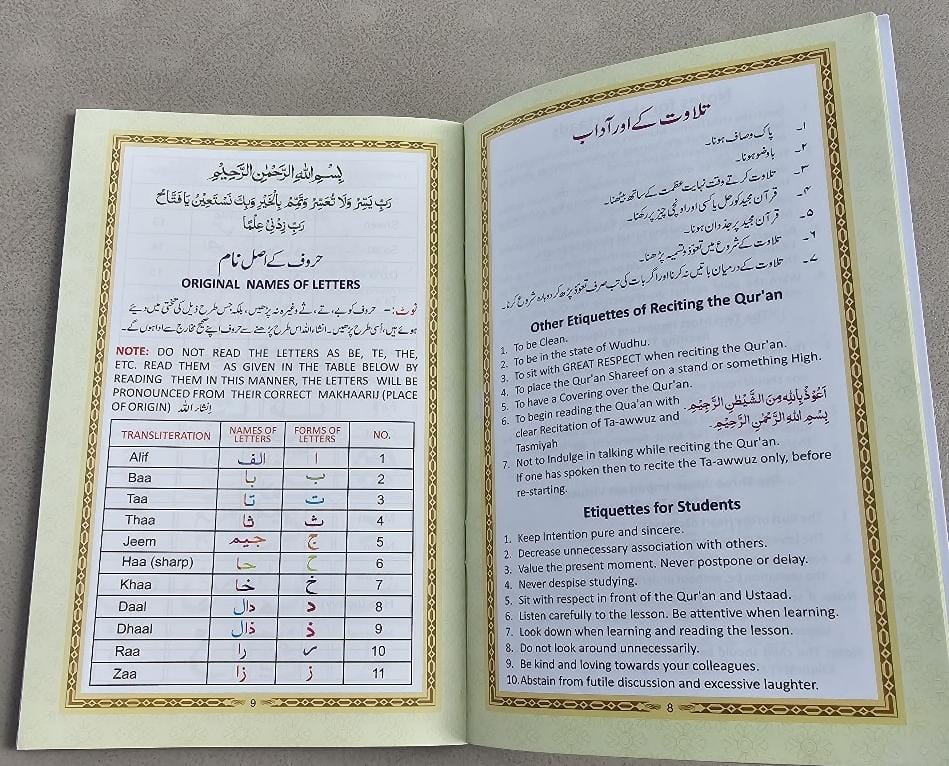 تلاوت کے اور آداب
۱۔ پاک و صاف ہونا۔
۲۔ باوضو ہونا۔
۳۔ تلاوت کرتے وقت نہایت عظمت کے ساتھ بیٹھنا۔
۴۔ قرآن مجید کو رحل یا کسی اور اونچی چیز پر رکھنا۔
۵۔ قرآن مجید پر جزدان ہونا۔
۶۔ تلاوت کے شروع میں تعوّذ و تسمیہ پڑھنا۔
۷۔ تلاوت کے درمیان باتیں نہ کرنا اور اگر بات کی تب صرف تعوّذ پڑھ کر دوبارہ شروع کرنا۔
Other Etiquettes of Reciting the Qur'an
1. To be Clean.
2. To be in the state of Wudhu.
3. To sit with GREAT RESPECT when reciting the Qur'an.
4. To place the Qur'an Shareef on a stand or something High.
5. To have a Covering over the Qur'an.
6. To begin reading the Qua'an with اَعُوْذُ بِاللّٰهِ مِنَ الشَّيْطٰنِ الرَّجِيْمِ۔
clear Recitation of Ta-awwuz and بِسْمِ اللّٰهِ الرَّحْمٰنِ الرَّحِيْمِ۔
Tasmiyah
7. Not to Indulge in talking while reciting the Qur'an.
If one has spoken then to recite the Ta-awwuz only, before
re-starting.
Etiquettes for Students
1. Keep Intention pure and sincere.
2. Decrease unnecessary association with others.
3. Value the present moment. Never postpone or delay.
4. Never despise studying.
5. Sit with respect in front of the Qur'an and Ustaad.
6. Listen carefully to the lesson. Be attentive when learning.
7. Look down when learning and reading the lesson.
8. Do not look around unnecessarily.
9. Be kind and loving towards your colleagues.
10. Abstain from futile discussion and excessive laughter.
8
بِسْمِ اللّٰهِ الرَّحْمٰنِ الرَّحِيْمِ
رَبِّ يَسِّرْ وَلَا تُعَسِّرْ وَتَمِّمْ بِالْخَيْرِ وَبِكَ نَسْتَعِيْنُ يَا فَتَّاحُ
رَبِّ زِدْنِيْ عِلْمًا
حروف کے اصل نام
ORIGINAL NAMES OF LETTERS
نوٹ:- حروف کو بے، تے، ثے وغیرہ نہ پڑھیں، بلکہ جس طرح ذیل کی تختی میں دیئے
ہوئے ہیں، اُسی طرح پڑھیں۔ انشاءاللہ اس طرح پڑھنے سے حروف اپنے صحیح مخارج سے ادا ہوں گے۔
NOTE: DO NOT READ THE LETTERS AS BE, TE, THE,
ETC. READ THEM AS GIVEN IN THE TABLE BELOW BY
READING THEM IN THIS MANNER, THE LETTERS WILL BE
PRONOUNCED FROM THEIR CORRECT MAKHAARIJ (PLACE
OF ORIGIN) إنشاءالله
TRANSLITERATION NAMES OF LETTERS FORMS OF LETTERS NO.
Alif الف ا 1
Baa با ب 2
Taa تا ت 3
Thaa ثا ث 4
Jeem جیم ج 5
Haa (sharp) حا ح 6
Khaa خا خ 7
Daal دال د 8
Dhaal ذال ذ 9
Raa را ر 10
Zaa زا ز 11
9